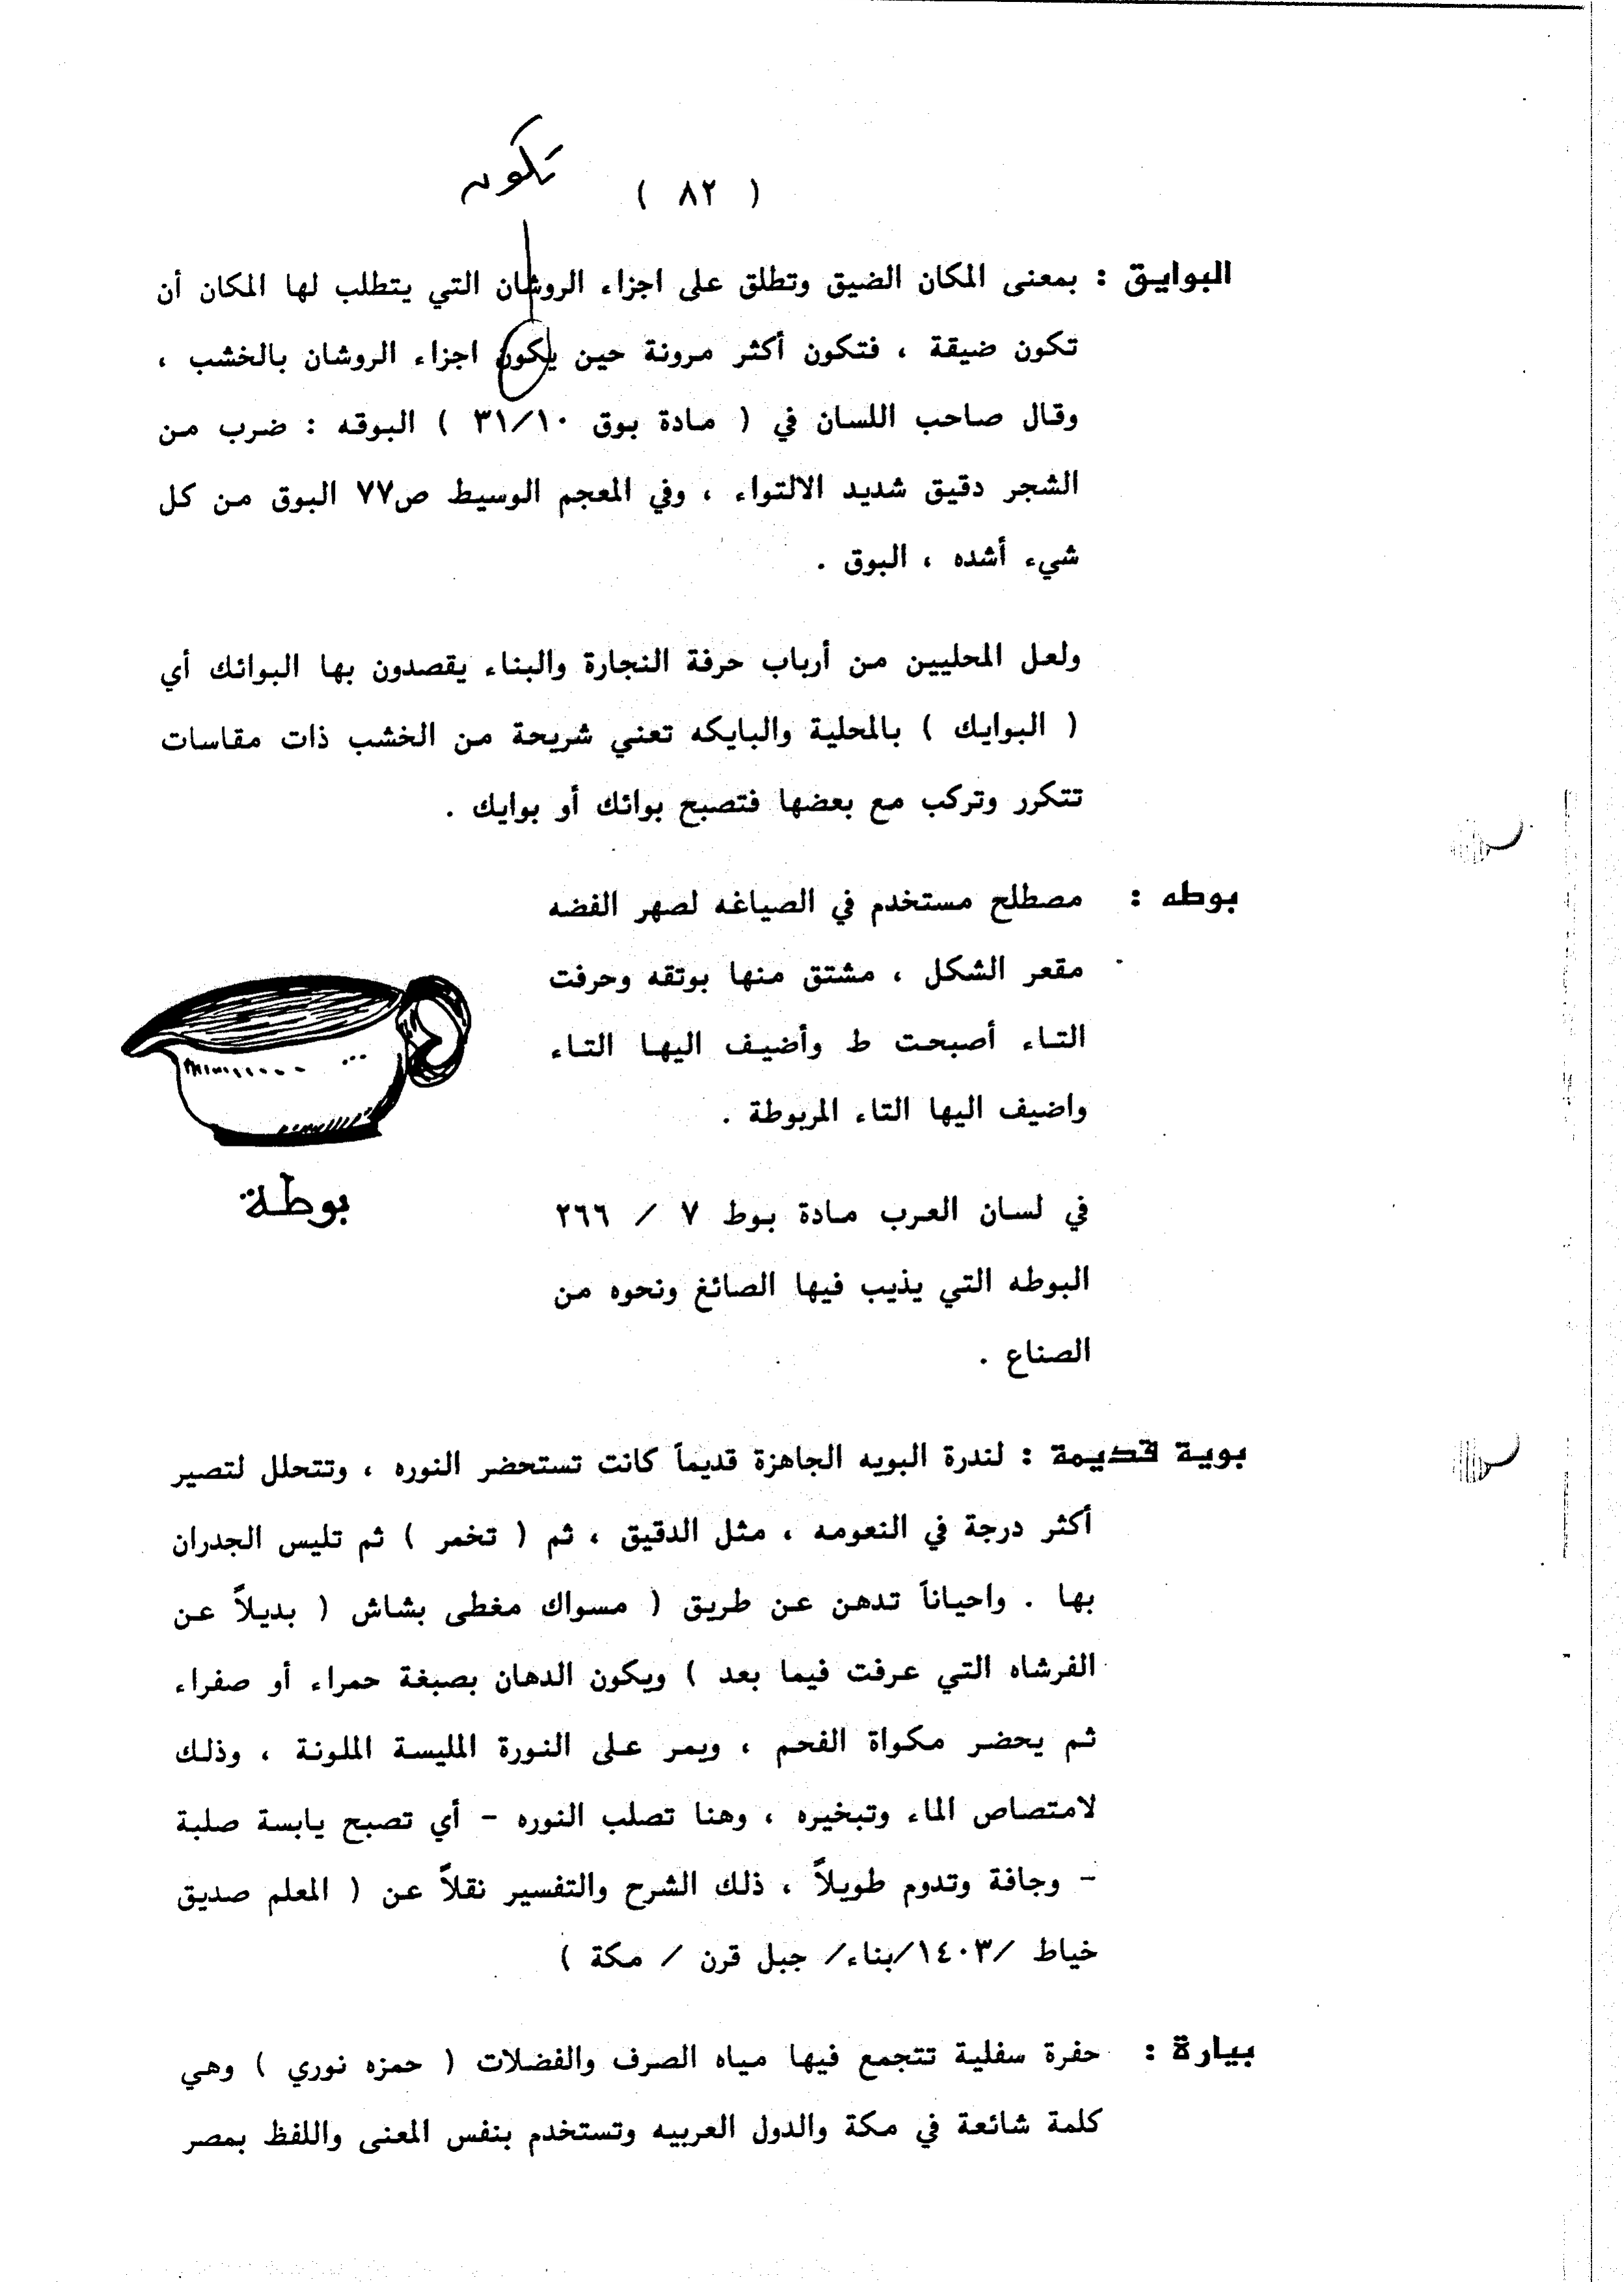 تكون
( ٨٢ )
البوايق : بمعنى المكان الضيق وتطلق على اجزاء الروشان التي يتطلب لها المكان أن
تكون ضيقة ، فتكون أكثر مرونة حين يكون اجزاء الروشان بالخشب ،
وقال صاحب اللسان في ( مادة بوق ٣١/١٠ ) البوقه : ضرب من
الشجر دقيق شديد الالتواء ، وفي المعجم الوسيط ص٧٧ البوق من كل
شيء أشده ، البوق .
ولعل المحليين من أرباب حرفة النجارة والبناء يقصدون بها البوائك أي
( البوايك ) بالمحلية والبايكه تعني شريحة من الخشب ذات مقاسات
تتكرر وتركب مع بعضها فتصبح بوائك أو بوايك .
بوطه : مصطلح مستخدم في الصياغه لصهر الفضه
مقعر الشكل ، مشتق منها بوتقه وحرفت
التاء أصبحت ط وأضيف اليها التاء
واضيف اليها التاء المربوطة .
بوطة
في لسان العرب مادة بوط ٧ / ٢٦٦
البوطه التي يذيب فيها الصائغ ونحوه من
الصناع .
بوية قديمة : لندرة البويه الجاهزة قديماً كانت تستحضر النوره ، وتتحلل لتصير
أكثر درجة في النعومه ، مثل الدقيق ، ثم ( تخمر ) ثم تليس الجدران
بها . واحياناً تدهن عن طريق ( مسواك مغطى بشاش ( بديلاً عن
الفرشاه التي عرفت فيما بعد ) ويكون الدهان بصبغة حمراء أو صفراء
ثم يحضر مكواة الفحم ، ويمر على النورة المليسة الملونة ، وذلك
لامتصاص الماء وتبخيره ، وهنا تصلب النوره - أي تصبح يابسة صلبة
- وجافة وتدوم طويلاً ، ذلك الشرح والتفسير نقلاً عن ( المعلم صديق
خياط /١٤٠٣/بناء/ جبل قرن / مكة )
بيارة : حفرة سفلية تتجمع فيها مياه الصرف والفضلات ( حمزه نوري ) وهي
كلمة شائعة في مكة والدول العربيه وتستخدم بنفس المعنى واللفظ بمصر